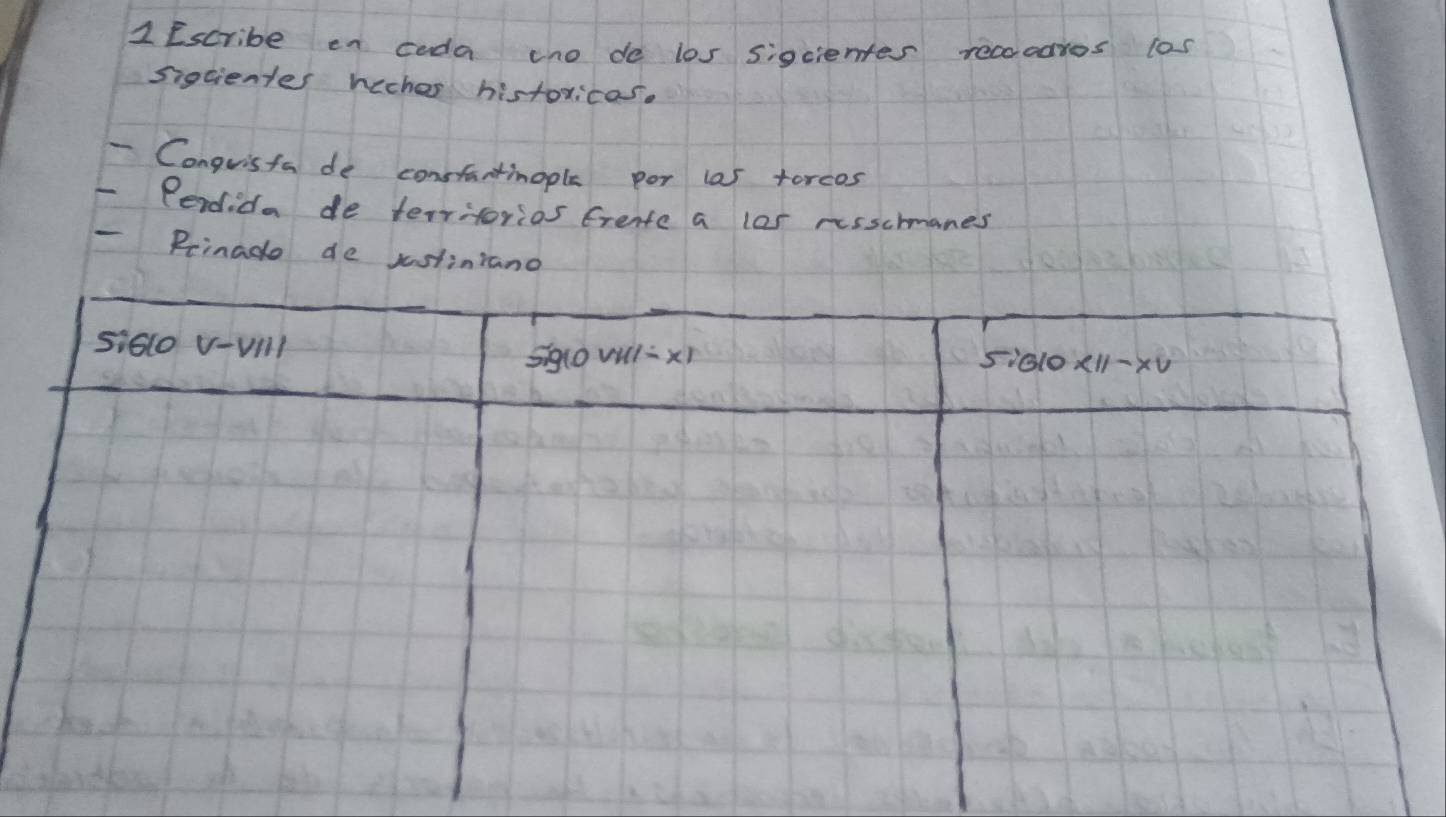 1 Escribe en cada uno de los siguientes recuadros los
siguientes hechos historicos.
- Conquista de constantinopla por los turcos
- Perdida de territorios frente a los musulmanes
- Reinado de justiniano
SiGlO V-VIII
Siglo VIII-XI
SiGlO XII-XV